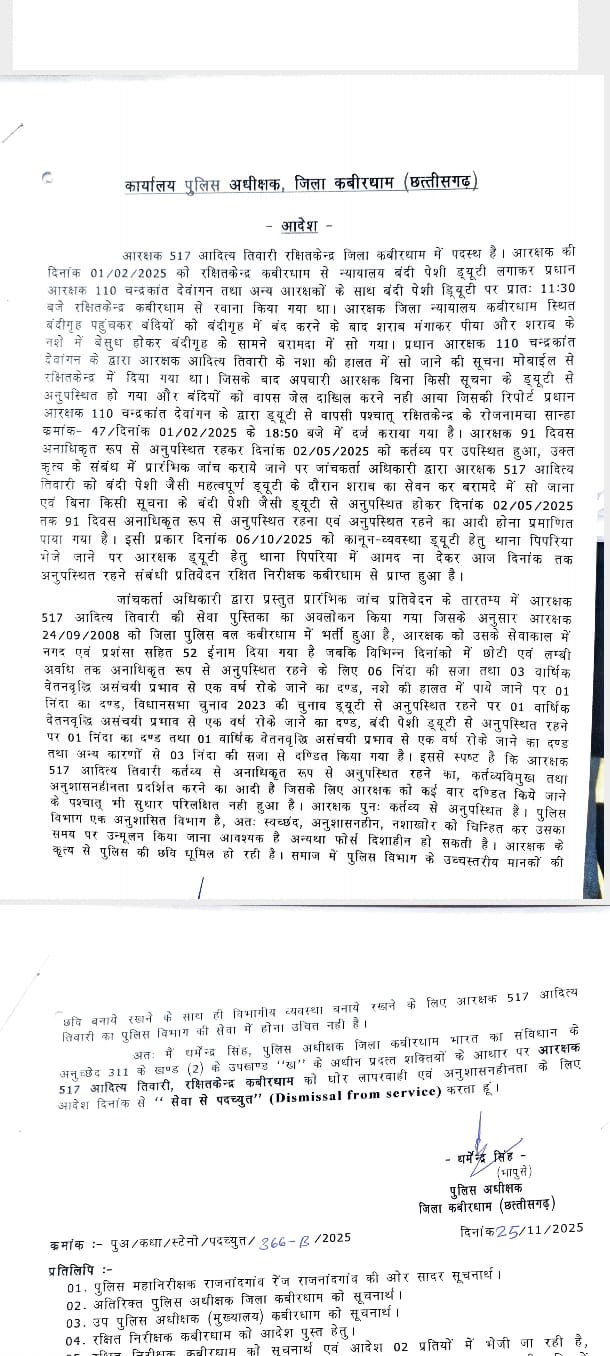 कार्यालय पुलिस अधीक्षक, जिला कबीरधाम (छत्तीसगढ़)
- आदेश -
आरक्षक 517 आदित्य तिवारी रक्षितकेन्द्र जिला कबीरधाम में पदस्थ है। आरक्षक की
दिनांक 01/02/2025 को रक्षितकेन्द्र कबीरधाम से न्यायालय बंदी पेशी ड्यूटी लगाकर प्रधान
आरक्षक 110 चन्द्रकांत देवांगन तथा अन्य आरक्षकों के साथ बंदी पेशी डि्यूटी पर प्रातः 11:30
बजे रक्षितकेन्द्र कबीरधाम से रवाना किया गया था। आरक्षक जिला न्यायालय कबीरधाम स्थित
बंदीगृह पहुंचकर बंदियों को बंदीगृह में बंद करने के बाद शराब मंगाकर पीया और शराब के
नशे में बेसुध होकर बंदीगृह के सामने बरामदा में सो गया। प्रधान आरक्षक 110 चन्द्रकांत
देवांगन के द्वारा आरक्षक आदित्य तिवारी के नशा की हालत में सो जाने की सूचना मोबाईल से
रक्षितकेन्द्र में दिया गया था। जिसके बाद अपचारी आरक्षक बिना किसी सूचना के ड्यूटी से
अनुपस्थित हो गया और बंदियों को वापस जेल दाखिल करने नही आया जिसकी रिपोर्ट प्रधान
आरक्षक 110 चन्द्रकांत देवांगन के द्वारा ड्यूटी से वापसी पश्चात् रक्षितकेन्द्र के रोजनामचा सान्हा
क्रमांक- 47/दिनांक 01/02/2025 के 18:50 बजे में दर्ज कराया गया है। आरक्षक 91 दिवस
अनाधिकृत रूप से अनुपस्थित रहकर दिनांक 02/05/2025 को कर्तव्य पर उपस्थित हुआ, उक्त
कृत्य के संबंध में प्रारंभिक जांच कराये जाने पर जांचकर्ता अधिकारी द्वारा आरक्षक 517 आदित्य
तिवारी को बंदी पेशी जैसी महत्वपूर्ण ड्यूटी के दौरान शराब का सेवन कर बरामदे में सो जाना
एवं बिना किसी सूचना के बंदी पेशी जैसी ड्यूटी से अनुपस्थित होकर दिनांक 02/05/2025
तक 91 दिवस अनाधिकृत रूप से अनुपस्थित रहना एवं अनुपस्थित रहने का आदी होना प्रमाणित
पाया गया है। इसी प्रकार दिनांक 06/10/2025 को कानून-व्यवस्था ड्यूटी हेतु थाना पिपरिया
भेजे जाने पर आरक्षक ड्यूटी हेतु थाना पिपरिया में आमद ना देकर आज दिनांक तक
अनुपस्थित रहने संबंधी प्रतिवेदन रक्षित निरीक्षक कबीरधाम से प्राप्त हुआ है।
जांचकर्ता अधिकारी द्वारा प्रस्तुत प्रारंभिक जांच प्रतिवेदन के तारतम्य में आरक्षक
517 आदित्य तिवारी की सेवा पुस्तिका का अवलोकन किया गया जिसके अनुसार आरक्षक
24/09/2008 को जिला पुलिस बल कबीरधाम में भर्ती हुआ है, आरक्षक को उसके सेवाकाल में
नगद एवं प्रशंसा सहित 52 ईनाम दिया गया है जबकि विभिन्न दिनांको में छोटी एवं लम्बी
अवधि तक अनाधिकृत रूप से अनुपस्थित रहने के लिए 06 निंदा की सजा तथा 03 वार्षिक
वेतनवृद्धि असंचयी प्रभाव से एक वर्ष रोके जाने का दण्ड, नशे की हालत में पाये जाने पर 01
निंदा का दण्ड, विधानसभा चुनाव 2023 की चुनाव ड्यूटी से अनुपस्थित रहने पर 01 वार्षिक
वेतनवृद्धि असंचयी प्रभाव से एक वर्ष रोके जाने का दण्ड, बंदी पेशी ड्यूटी से अनुपस्थित रहने
पर 01 निंदा का दण्ड तथा 01 वार्षिक वेतनवृद्धि असंचयी प्रभाव से एक वर्ष रोके जाने का दण्ड
तथा अन्य कारणों से 03 निंदा की सजा से दण्डित किया गया है। इससे स्पष्ट है कि आरक्षक
517 आदित्य तिवारी कर्तव्य से अनाधिकृत रूप से अनुपस्थित रहने का, कर्तव्यविमुख तथा
अनुशासनहीनता प्रदर्शित करने का आदी है जिसके लिए आरक्षक को कई बार दण्डित किये जाने
के पश्चात् भी सुधार परिलक्षित नही हुआ है। आरक्षक पुनः कर्तव्य से अनुपस्थित है। पुलिस
विभाग एक अनुशासित विभाग है, अतः स्वच्छंद, अनुशासनहीन, नशाखोर को चिन्हित कर उसका
समय पर उन्मूलन किया जाना आवश्यक है अन्यथा फोर्स दिशाहीन हो सकती है। आरक्षक के
कृत्य से पुलिस की छवि धूमिल हो रही है। समाज में पुलिस विभाग के उच्चस्तरीय मानकों की
छवि बनाये रखने के साथ ही विभागीय व्यवस्था बनाये रखने के लिए आरक्षक 517 आदित्य
तिवारी का पुलिस विभाग की सेवा में होना उचित नही है।
अतः मैं धर्मेन्द्र सिंह, पुलिस अधीक्षक जिला कबीरधाम भारत का संविधान के
अनुच्छेद 311 के खण्ड (2) के उपखण्ड "ख" के अधीन प्रदत्त शक्तियों के आधार पर आरक्षक
517 आदित्य तिवारी, रक्षितकेन्द्र कबीरधाम को घोर लापरवाही एवं अनुशासनहीनता के लिए
आदेश दिनांक से " सेवा से पदच्युत" (Dismissal from service) करता हूं।
- धर्मेन्द्र सिंह -
(भापुसे)
पुलिस अधीक्षक
जिला कबीरधाम (छत्तीसगढ़)
क्रमांक :- पुअ/कधा/स्टेनो/पदच्युत/ 366-B /2025
दिनांक 25/11/2025
प्रतिलिपि :-
01. पुलिस महानिरीक्षक राजनांदगांव रेंज राजनांदगांव की ओर सादर सूचनार्थ।
02. अतिरिक्त पुलिस अधीक्षक जिला कबीरधाम को सूचनार्थ।
03. उप पुलिस अधीक्षक (मुख्यालय) कबीरधाम को सूचनार्थ।
04. रक्षित निरीक्षक कबीरधाम को आदेश पुस्त हेतु।
रक्षित निरीक्षक कबीरधाम को सूचनार्थ एवं आदेश 02 प्रतियों में भेजी जा रही है,